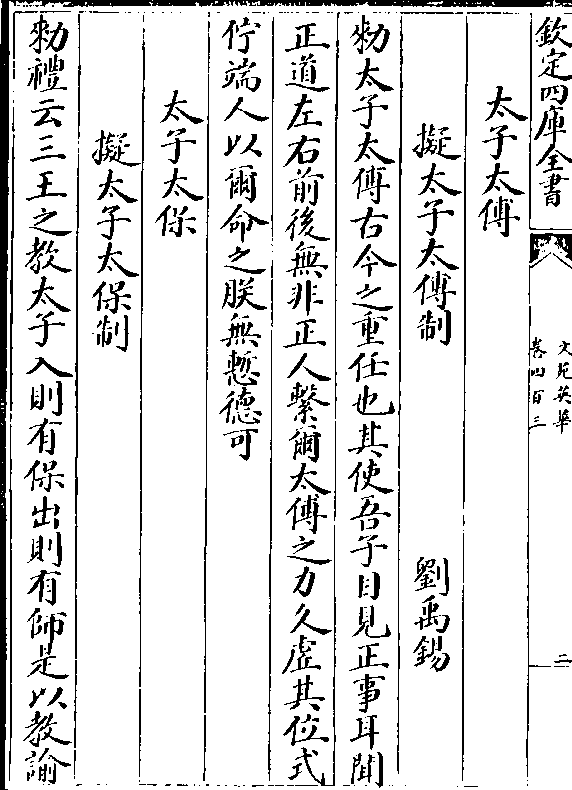 欽定四庫全書
文苑英華
卷四百三
二
太子太傅
擬太子太傅制
劉禹錫
勑太子太傅古今之重任也其使吾子目見正事耳聞
正道左右前後無非正人繫爾太傅之力久虛其位式
佇端人以爾命之朕無慙德可
太子太保
擬太子太保制
勑禮云三王之教太子入則有保出則有師是以教諭